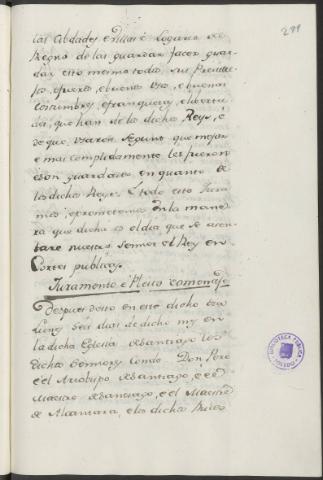 291
las Cibdades e villas é Logares de
Regno de las guardar facer guar-
dar esto mesmo todos sus Previle-
jos, e fueros, e buenos usos, e buenas
costumbres, e franquezas, e liberta-
des, que han de los dichos Reyes, é
de que usaron segunt que mejor
e mas complidamente les fueron
e son guardados en quanto de
los dichos Reyes. E todo esto jura-
mos, e prometemos en la mane-
ra que dicha es el dia que se asen-
tare nuestro Señor el Rey en
Cortes publicas.
Juramento é Pleito e omenaje
Despues desto en este dicho dia
Lunes seis dias de dicho mes en
la dicha Eglesia de Santiago los
dichos Señores Conde Don Pero
e el Arzobispo de Santiago, e el
Maestre de Santiago, e el Maestre
de Alcantara, e los dichos
BIBLIOTECA PUBLICA
TOLEDO